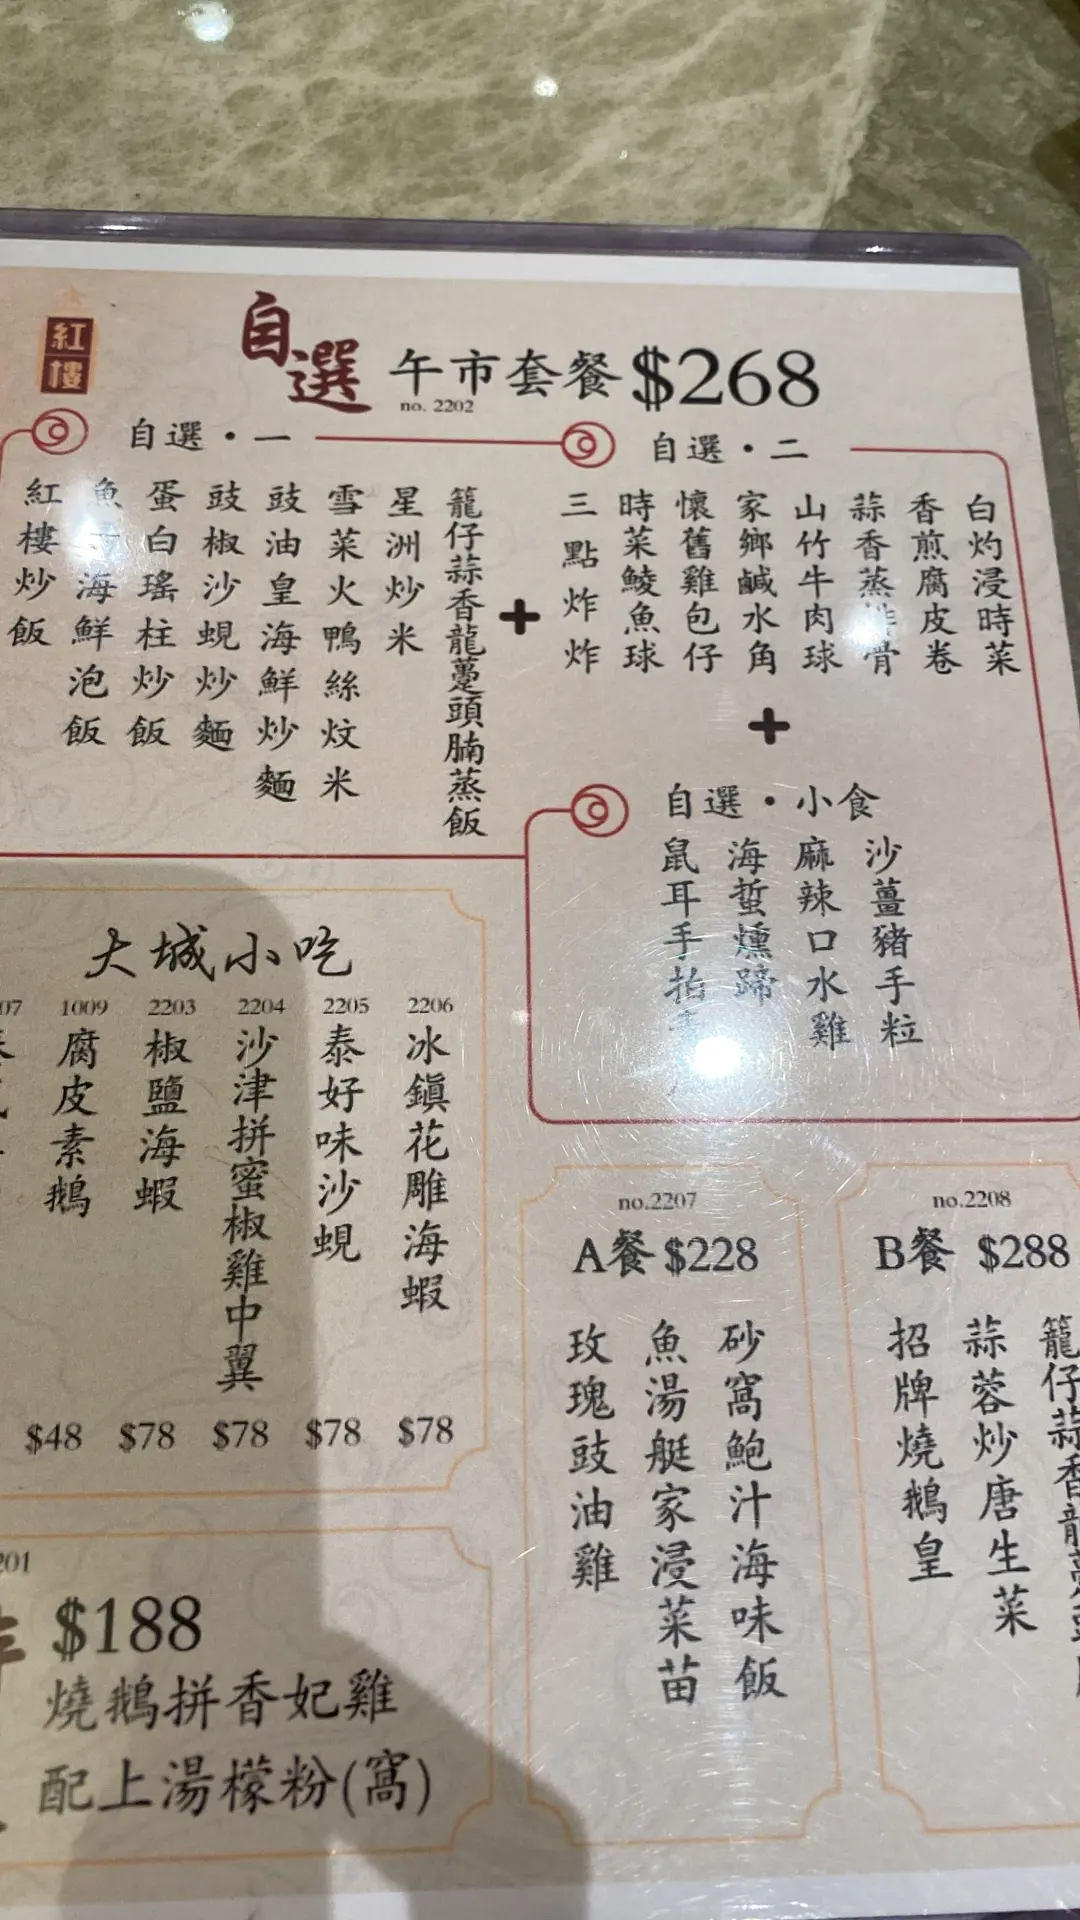 紅樓
自選 午市套餐 $268
no. 2202
自選・一
紅樓炒飯
魚 海鮮泡飯
蛋白瑤柱炒飯
豉椒沙蜆炒麵
豉油皇海鮮炒麵
雪菜火鴨絲炆米
星洲炒米
籠仔蒜香龍躉頭腩蒸飯
+
自選・二
三點炸炸
時菜鯪魚球
懷舊雞包仔
家鄉鹹水角
山竹牛肉球
蒜香蒸排骨
香煎腐皮卷
白灼浸時菜
+
自選・小食
鼠耳手拍
海蜇燻蹄
麻辣口水雞
沙薑豬手粒
大城小吃
07
1009
腐皮素鵝
$48
2203
椒鹽海蝦
$78
2204
沙津拼蜜椒雞中翼
$78
2205
泰好味沙蜆
$78
2206
冰鎮花雕海蝦
$78
201
$188
燒鵝拼香妃雞
配上湯檬粉(窩)
no.2207
A餐 $228
玫瑰豉油雞
魚湯艇家浸菜苗
砂窩鮑汁海味飯
no.2208
B餐 $288
招牌燒鵝皇
蒜蓉炒唐生菜
籠仔蒜香龍躉頭